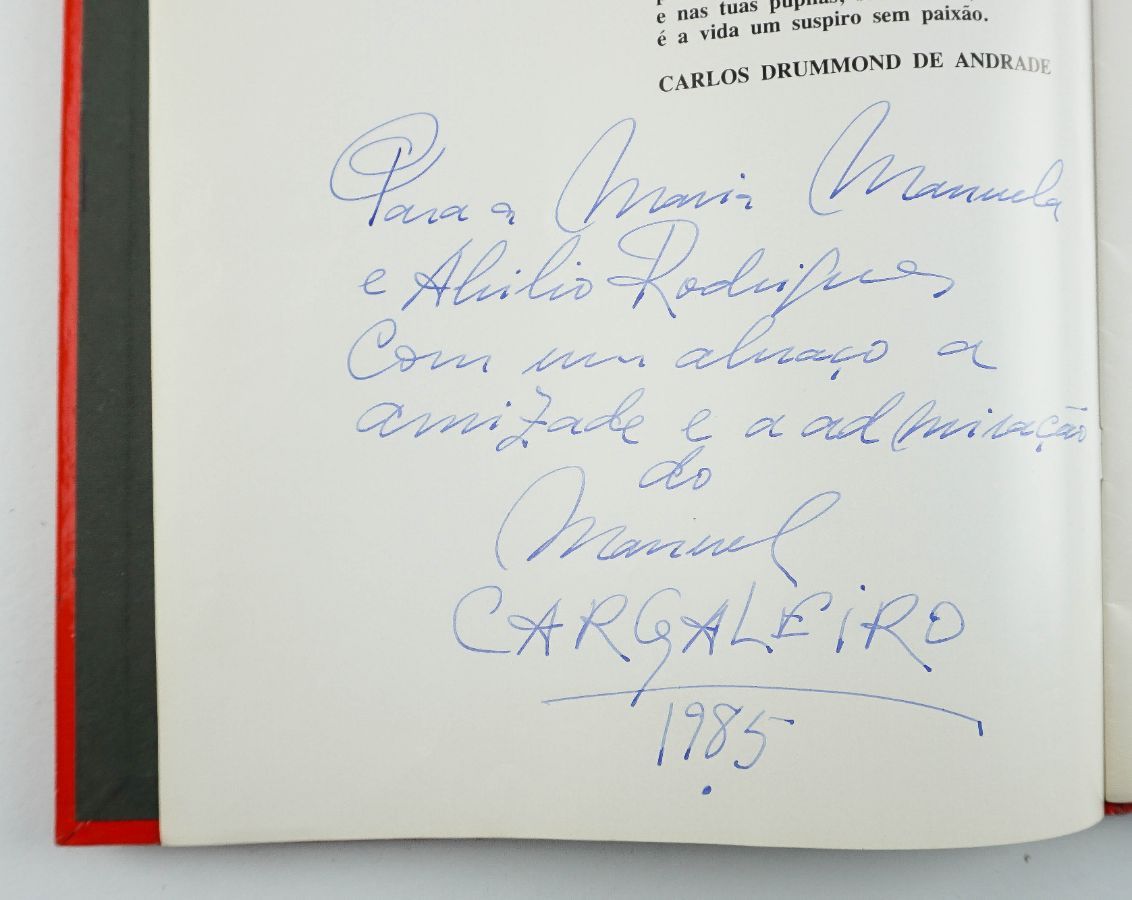 e nas tuas pupilas,
é a vida um suspiro sem paixão.
CARLOS DRUMMOND DE ANDRADE
Para a Maria Manuela
e Abilio Rodrigues
Com um abraço a
amizade e a admiração
do
Manuel
CARGALEIRO
1985